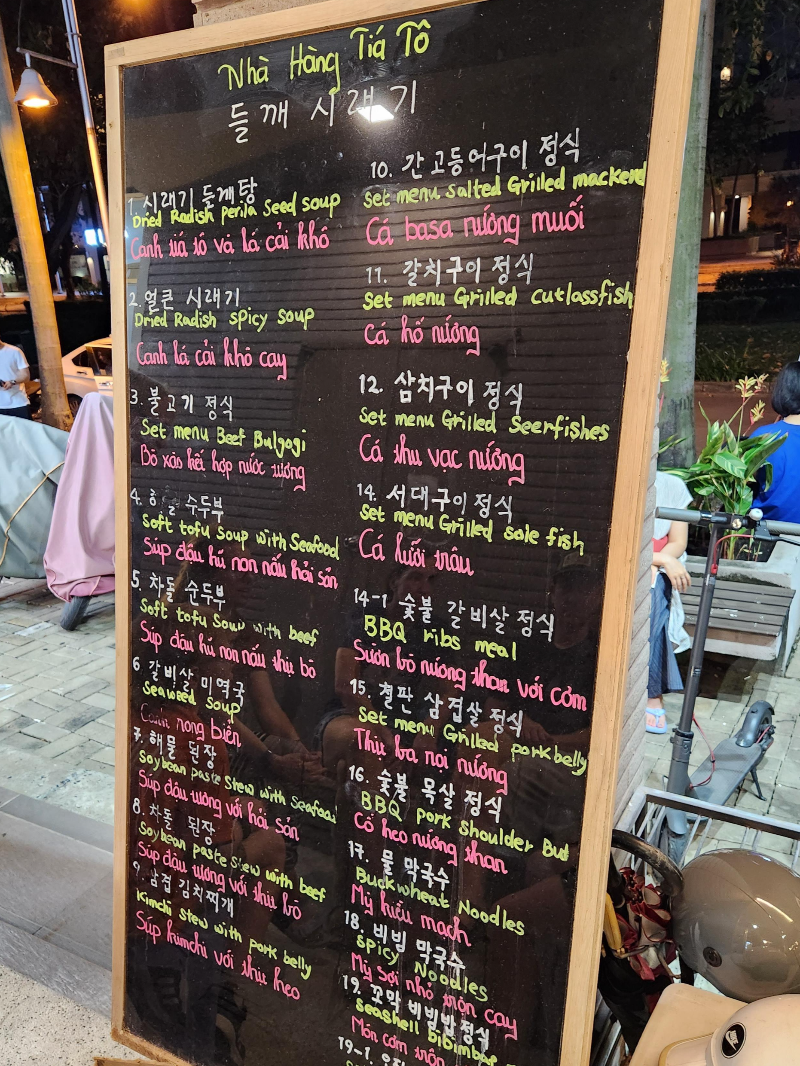 Nhà Hàng Tiá Tô
들깨 시래기
1. 시래기 들깨탕
Dried Radish Perila Seed soup
Canh tiá tô và lá cải khô
2. 얼큰 시래기
Dried Radish spicy soup
Canh lá cải khô cay
3. 불고기 정식
Set menu Beef Bulgogi
Bò xào kết hợp nước tương
4. 해물 순두부
Soft tofu soup with Seafood
Súp đậu hủ non nấu hải sản
5. 차돌 순두부
Soft tofu soup with beef
Súp đậu hủ non nấu thịt bò
6 갈비살 미역국
Seaweed soup
Canh rong biển
7. 해물 된장
Soybean paste stew with seafood
Súp đậu tương với hải sản
8. 차돌 된장
Soybean paste stew with beef
Súp đậu tương với thịt bò
9. 삼겹 김치찌개
Kimchi stew with pork belly
Súp kimchi với thịt heo
10. 간고등어구이 정식
Set menu salted Grilled mackerel
Cá basa nướng muối
11. 갈치구이 정식
Set menu Grilled cutlassfish
Cá hố nướng
12. 삼치구이 정식
Set menu Grilled Seerfishes
Cá thu vạc nướng
14. 서대구이 정식
Set menu Grilled sole fish
Cá lưỡi trâu
14-1 숯불 갈비살 정식
BBQ ribs meal
Sườn bò nướng than với cơm
15. 철판 삼겹살 정식
Set menu Grilled porkbelly
Thịt ba rọi nướng
16. 숯불 목살 정식
BBQ pork shoulder But
Cổ heo nướng than
17. 물 막국수
Buckwheat Noodles
Mỳ kiều mạch
18. 비빔 막국수
Spicy Noodles
Mỳ sợi nhỏ trộn cay
19. 꼬막 비빔밥 정식
Seashell bibimbap
Món cơm trộn
19-1.